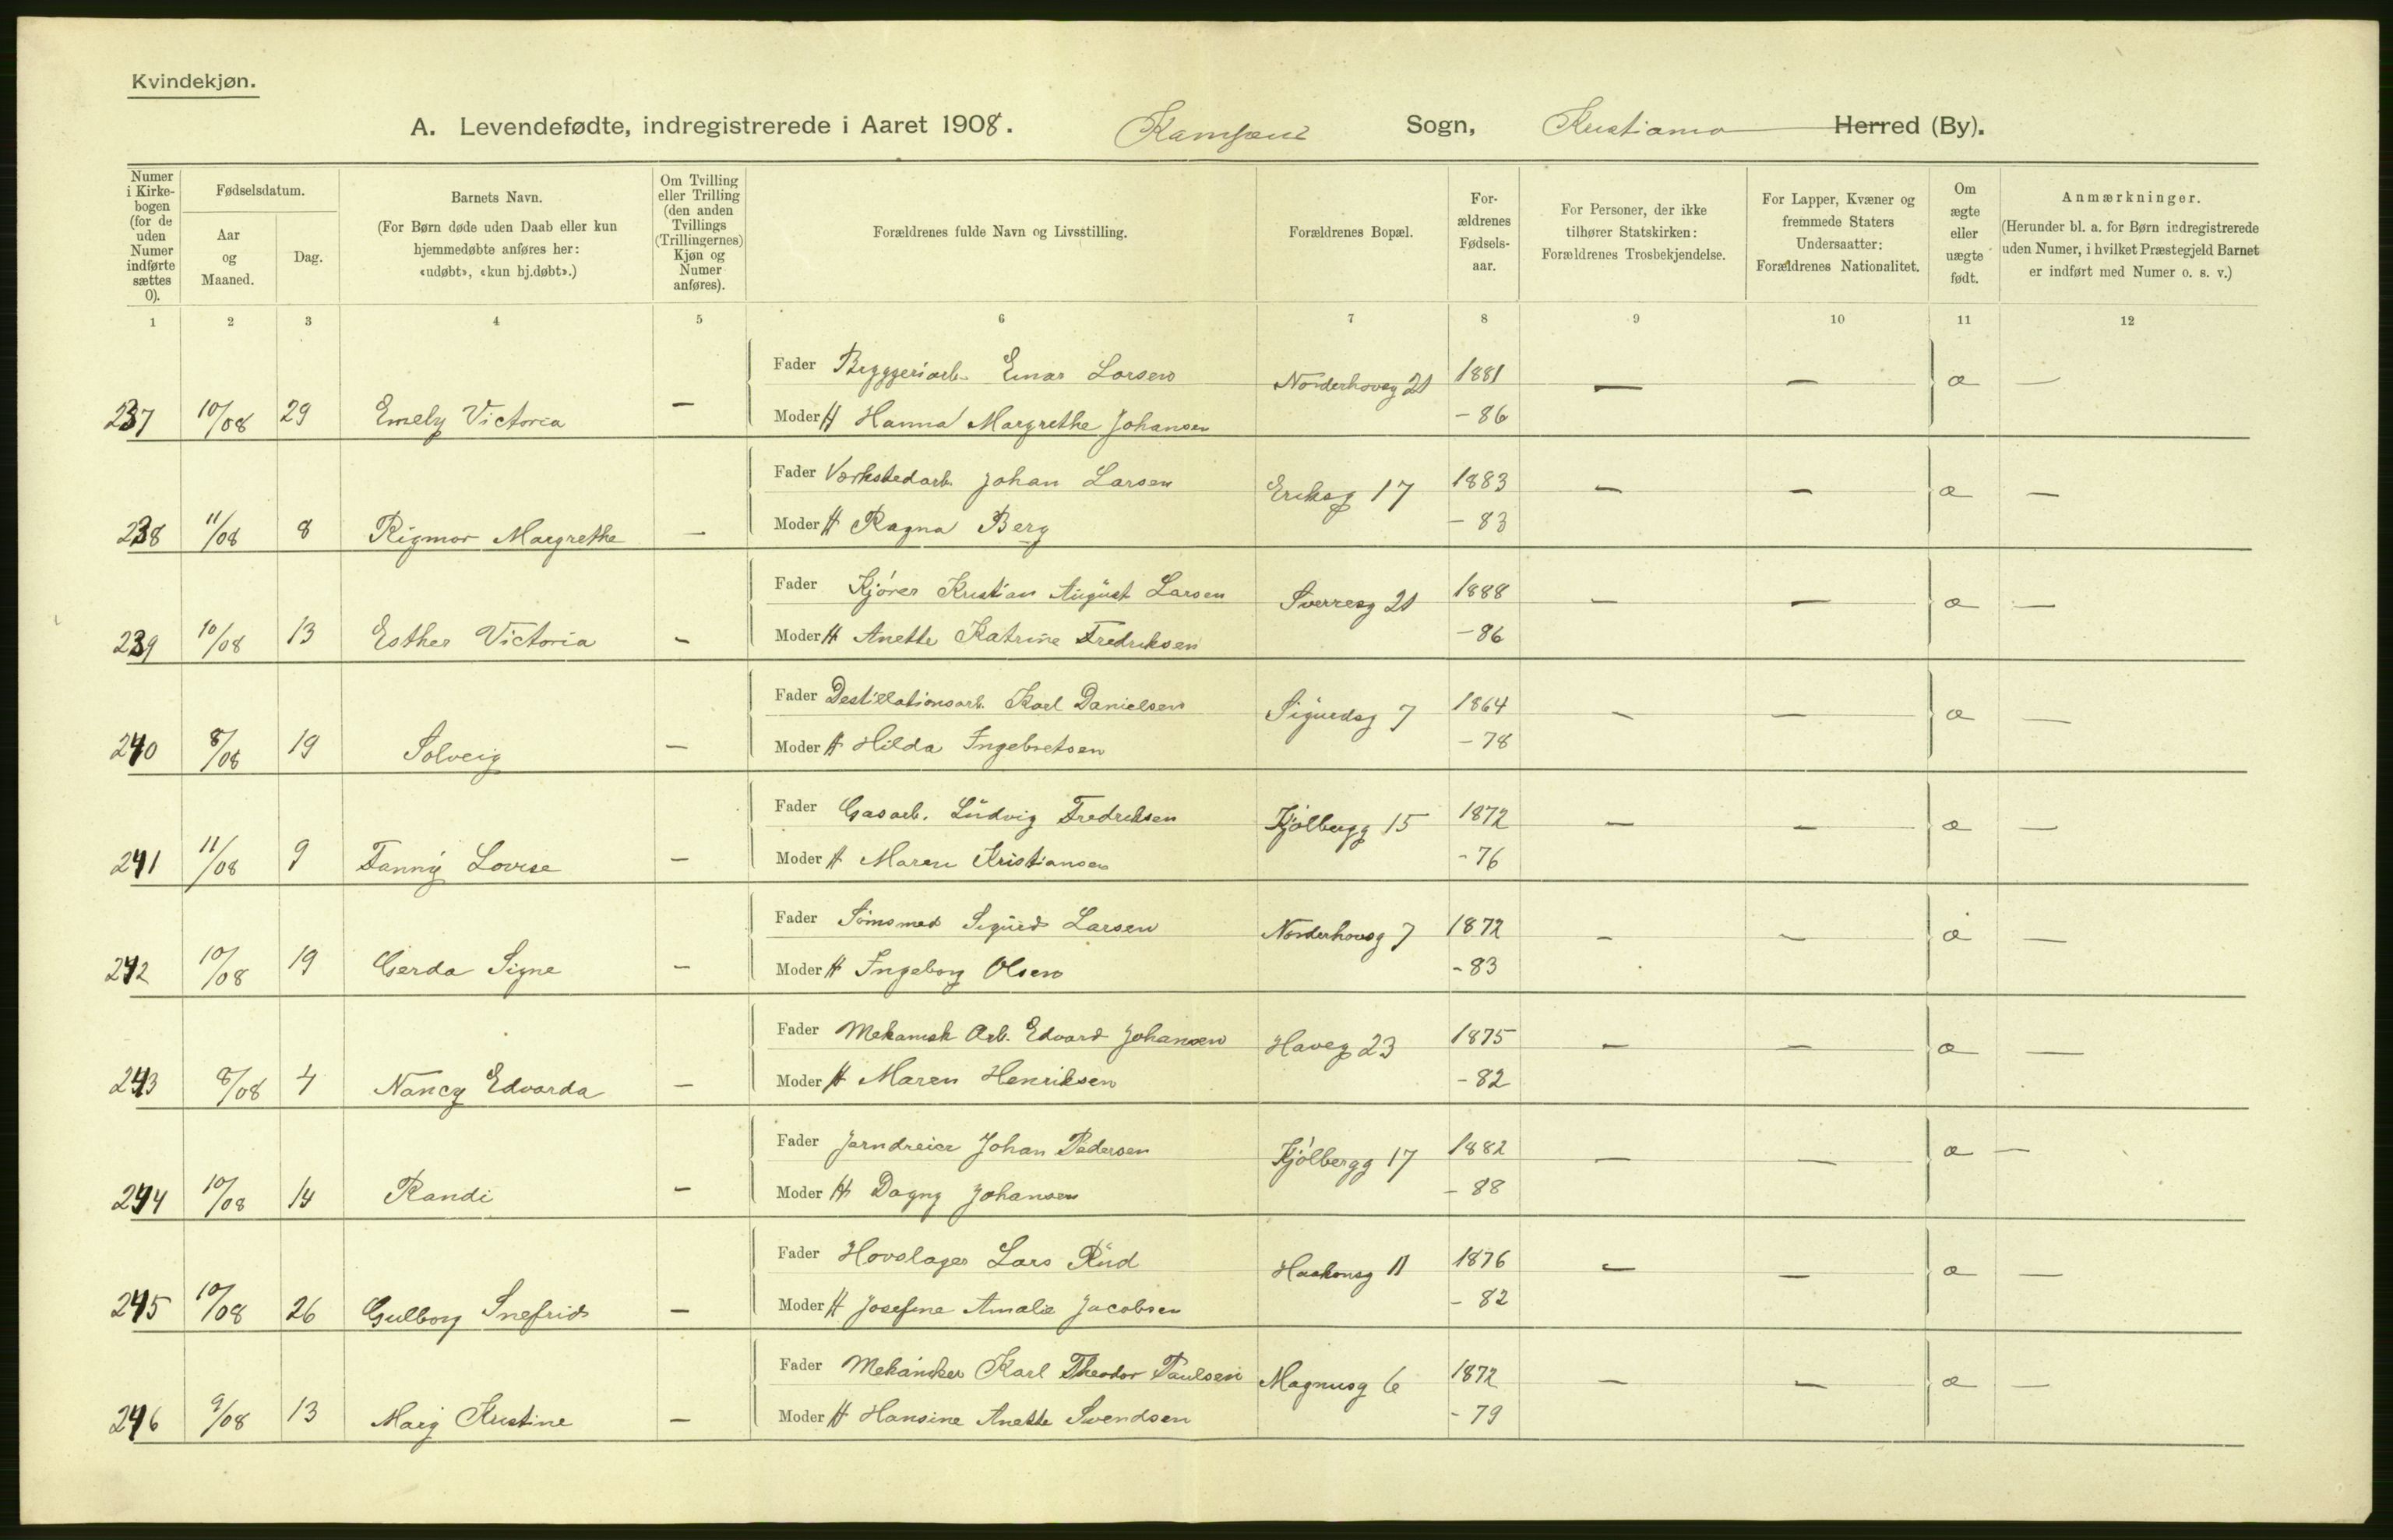 Kvindekjøn.
A. Levendefødte, indregistrerede i Aaret 1908. Kampens Sogn, Kristiania Herred (By).
Numer i Kirkebogen (for de uden Numer indførte sættes 0).
Fødselsdatum.
Aar og Maaned.
Dag.
Barnets Navn.
(For Børn døde uden Daab eller kun hjemmedøbte anføres her: «udøbt», «kun hj.døbt».)
Om Tvilling eller Trilling (den anden Tvillings (Trillingernes) Kjøn og Numer anføres).
Forældrenes fulde Navn og Livsstilling.
Forældrenes Bopæl.
Forældrenes Fødselsaar.
For Personer, der ikke tilhører Statskirken: Forældrenes Trosbekjendelse.
For Lapper, Kvæner og fremmede Staters Undersaatter: Forældrenes Nationalitet.
Om ægte eller uægte født.
Anmærkninger.
(Herunder bl. a. for Børn indregistrerede uden Numer, i hvilket Præstegjeld Barnet er indført med Numer o. s. v.)
1 2 3 4 5 6 7 8 9 10 11 12
Fader Bryggeriarb. Einar Larsen Norderhovsg 21 1881 — — æ —
237 10/08 29 Emely Victoria — Moder H Hanna Margrethe Johansen - 86
Fader Værkstedarb. Johan Larsen Eriksg 17 1883 — — æ —
238 11/08 8 Rigmor Margrethe — Moder H Ragna Berg - 83
Fader Kjører Kristian August Larsen Sverresg 21 1888 — — æ —
239 10/08 13 Esther Victoria — Moder H Anette Katrine Fredriksen - 86
Fader Destillationsarb. Karl Danielsen Sigurdsg 7 1864 — — æ —
240 8/08 19 Solveig — Moder H Hilda Ingebretsen - 78
Fader Gasarb. Ludvig Fredriksen Kjølbergg 15 1872 — — æ —
241 11/08 9 Fanny Lovise — Moder H Maren Kristiansen - 76
Fader Sømsmed Sigurd Larsen Norderhovsg 7 1872 — — æ —
242 10/08 19 Gerda Signe — Moder H Ingeborg Olsen - 83
Fader Mekanisk Arb. Edvard Johansen Haveg 23 1875 — — æ —
243 8/08 4 Nancy Edvarda — Moder H Maren Henriksen - 82
Fader Jerndreier Johan Pedersen Kjølbergg 17 1882 — — æ —
244 10/08 14 Randi — Moder H Dagny Johansen - 88
Fader Hovslager Lars Rud Haakonsg 11 1876 — — æ —
245 10/08 26 Gulborg Snefrid — Moder H Josefine Amalie Jacobsen - 82
Fader Mekaniker Karl Theodor Paulsen Magnusg 6 1872 — — æ —
246 9/08 13 Marg Kristine — Moder H Hansine Anette Svendsen - 79